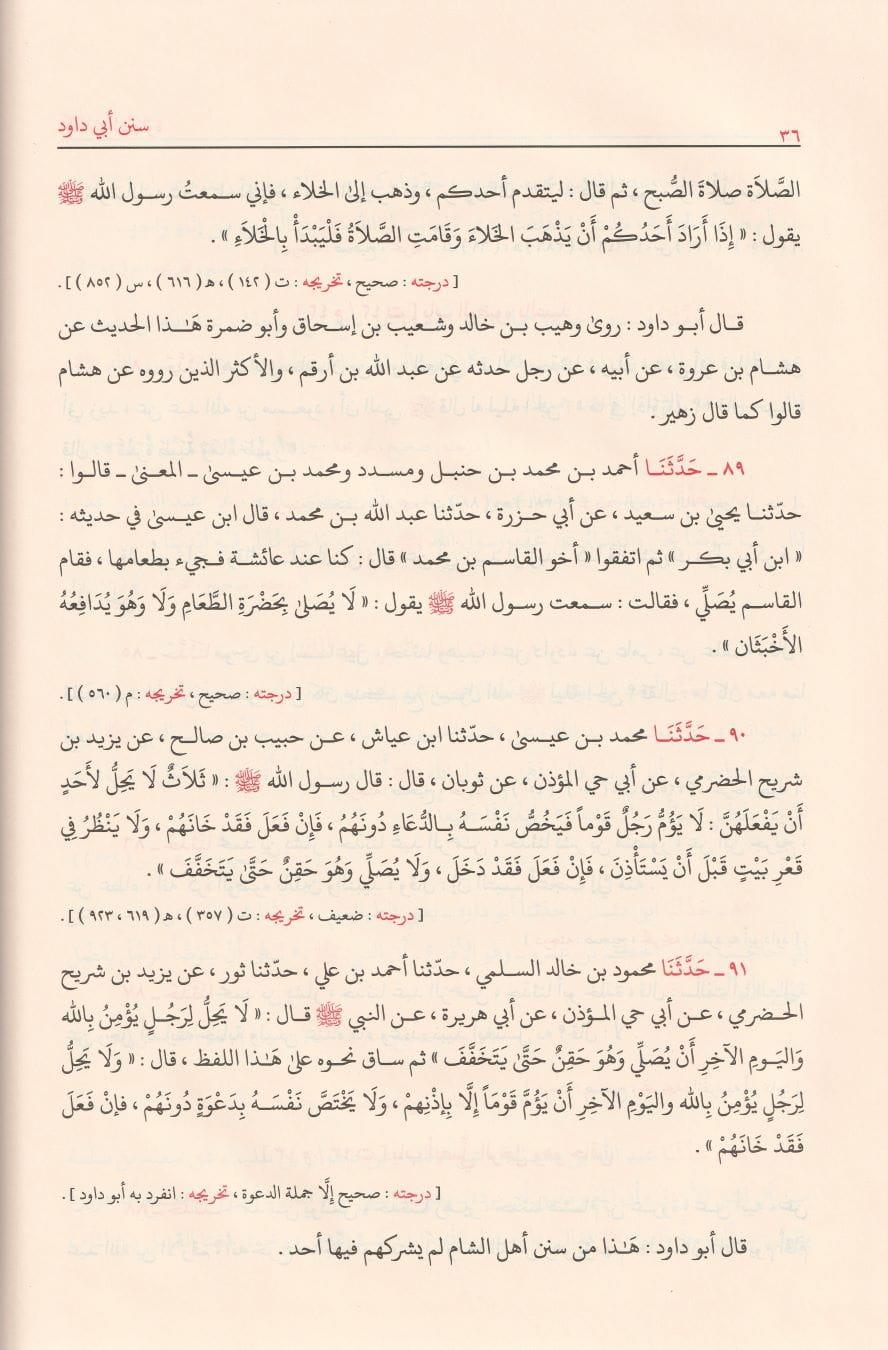 ٣٦ سنن أبي داود
الصَّلاَة صلاةَ الصُّبح ، ثم قال : ليتقدم أحدكم ، وذهب إلىٰ الخلاء ، فإني سمعتُ رسول الله ﷺ
يقول : « إِذَا أَرَادَ أَحَدُكُمْ أَنْ يَذْهَبَ الخَلاءَ وَقَامَتِ الصَّلاَةُ فَلْيَبْدَأْ بِالْخَلاَءِ » .
[ درجته : صحيح ، تخريجه : ت ( ١٤٢ ) ، ه ( ٦١٦ ) ، س ( ٨٥٢ ) ] .
قـال أبـو داود : روىٰ وهيب بـن خالد وشـعيب بن إسـحاق وأبو ضمرة هَـٰذا الحديث عن
هشـام بن عروة ، عن أبيه ، عن رجل حدثه عن عبد الله بن أرقم ، والأكثر الذين رووه عن هشام
قالوا كما قال زهير .
٨٩ ـ حَدَّثَنَا أحمد بن محمد بـن حنبل ومسدد ومحمد بن عيسىٰ ـ المعنىٰ ـ قالوا :
حدّثنـا يحيىٰ بن سـعيد ، عن أبي حزرة ، حدّثنا عبد الله بـن محمد ، قال ابن عيسىٰ في حديثه :
« ابن أبي بكـر » ثم اتفقوا « أخو القاسم بن محمد » قال : كنا عند عائشة فـجيء بطعامها ، فقام
القاسـم يُصَلِّي ، فقالت : سـمعت رسول الله ﷺ يقول : « لَا يُصَلىٰ بِحَضْرَةِ الطَّعَامِ وَلَا وَهُوَ يُدَافِعُهُ
الأَخْبَثَان » .
[ درجته : صحيح ، تخريجه : م ( ٥٦٠ ) ] .
٩٠ ـ حَدَّثَنَا محمد بـن عيـسىٰ ، حدّثنا ابن عياش ، عـن حبيب بن صالـح ، عن يزيد بن
شريح الحضرمي ، عن أبي حي المؤذن ، عن ثوبان ، قال : قال رسول الله ﷺ : « ثَـلَاثٌ لَا يَحِلُّ لأَحَدٍ
أَنْ يَفْعَلَهُنَّ : لَا يَؤُمُّ رَجُلٌ قَوْماً فَيَخُصُّ نَفْسَهُ بِـالدُّعَاءِ دُونَهُمْ ، فَإِنْ فَعَلَ فَقَدْ خَانَهُمْ ، وَلَا يَنْظُرُ فِي
قَعْرِ بَيْتٍ قَبْلَ أَنْ يَسْتَأْذِنَ ، فَإِنْ فَعَلَ فَقَدْ دَخَلَ ، وَلَا يُصَلِّي وَهُوَ حَقِنٌ حَتَّىٰ يَتَخَفَّفَ » .
[ درجته : ضعيف ، تخريجه : ت ( ٣٥٧ ) ، ه ( ٦١٩ ، ٩٢٣ ) ] .
٩١ ـ حَدَّثَنَا محمود بن خالد السـلمي ، حدّثنا أحمد بن علي ، حدّثنا ثور ، عن يزيد بن شريح
الحـضرمي ، عـن أبي حي المـؤذن ، عن أبي هريرة ، عـن النبي ﷺ قـال : « لَا يَحِلُّ لِرَجُـلٍ يُؤْمِنُ بِالله
وَاليـومِ الآخِرِ أَنْ يُصَلِّي وَهُوَ حَقِنٌ حَتَّىٰ يَتَخَفَّفَ » ثم ساق نحوه علىٰ هَـٰذا اللفظ ، قال : « وَلَا يَحِلُّ
لِرَجُلٍ يُؤْمِنُ بِالله واليَوْمِ الآخِرِ أَنْ يَؤُمَّ قَوْمَاً إِلَّا بِإذْنِهِمْ ، وَلَا يَخْتَصَّ نَفْسَـهُ بِدَعْوَةٍ دُونَهُمْ ، فإنْ فَعَلَ
فَقَدْ خَانَهُمْ » .
[ درجته : صحيح إِلَّا جملة الدعوة ، تخريجه : انفرد به أبو داود ] .
قال أبو داود : هَـٰذا من سنن أهل الشام لم يشركهم فيها أحد .